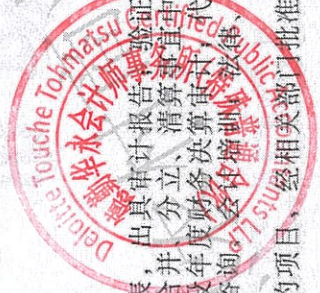 Deloitte Touche Tohmatsu Certified Public Accountants LLP
德勤华永会计师事务所(特殊普通合伙)
表，出具审计报告；验证
合并、分立、清算事宜
年度财务决算审计；代
咨询、会计培训；法律、
的项目，经相关部门批准